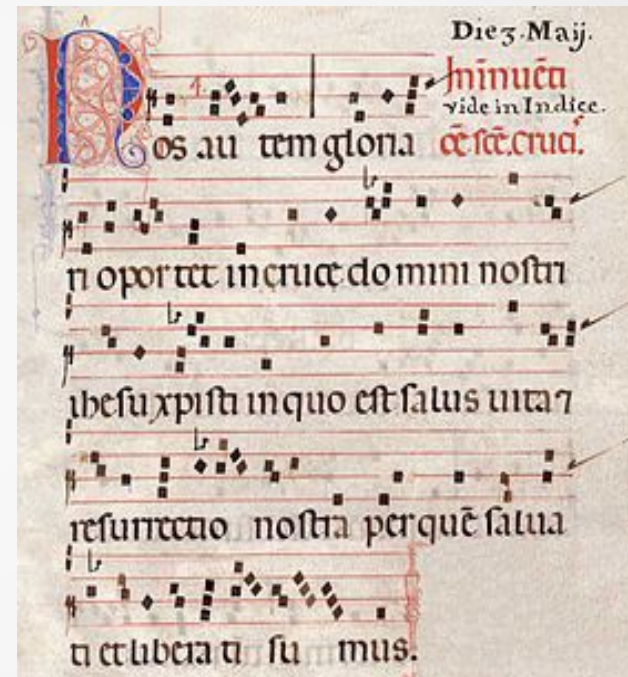 Die 3. Maij.
In inuēti
vide in Indice.
Nos au tem gloria
ōe sc̄e. cruci.
ri opor tet in cruce do mini nostri
ihesu xpisti in quo est salus uita ⁊
resurrectio nostra per quē salua
ti et libera ti su mus.